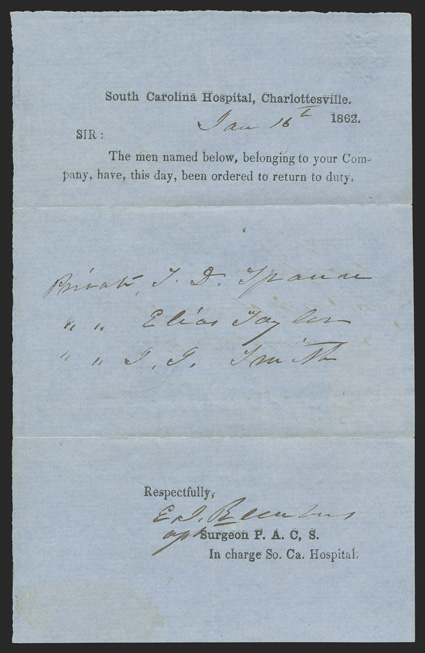 South Carolina Hospital, Charlottesville.
Jan 16th 1862.
SIR:
The men named below, belonging to your Com-
pany, have, this day, been ordered to return to duty.
Private, T. D. Spann
" " Elias Taylor
" " Smith
Respectfully,
E. J.
Surgeon P. A. C. S.
In charge So. Ca. Hospital.